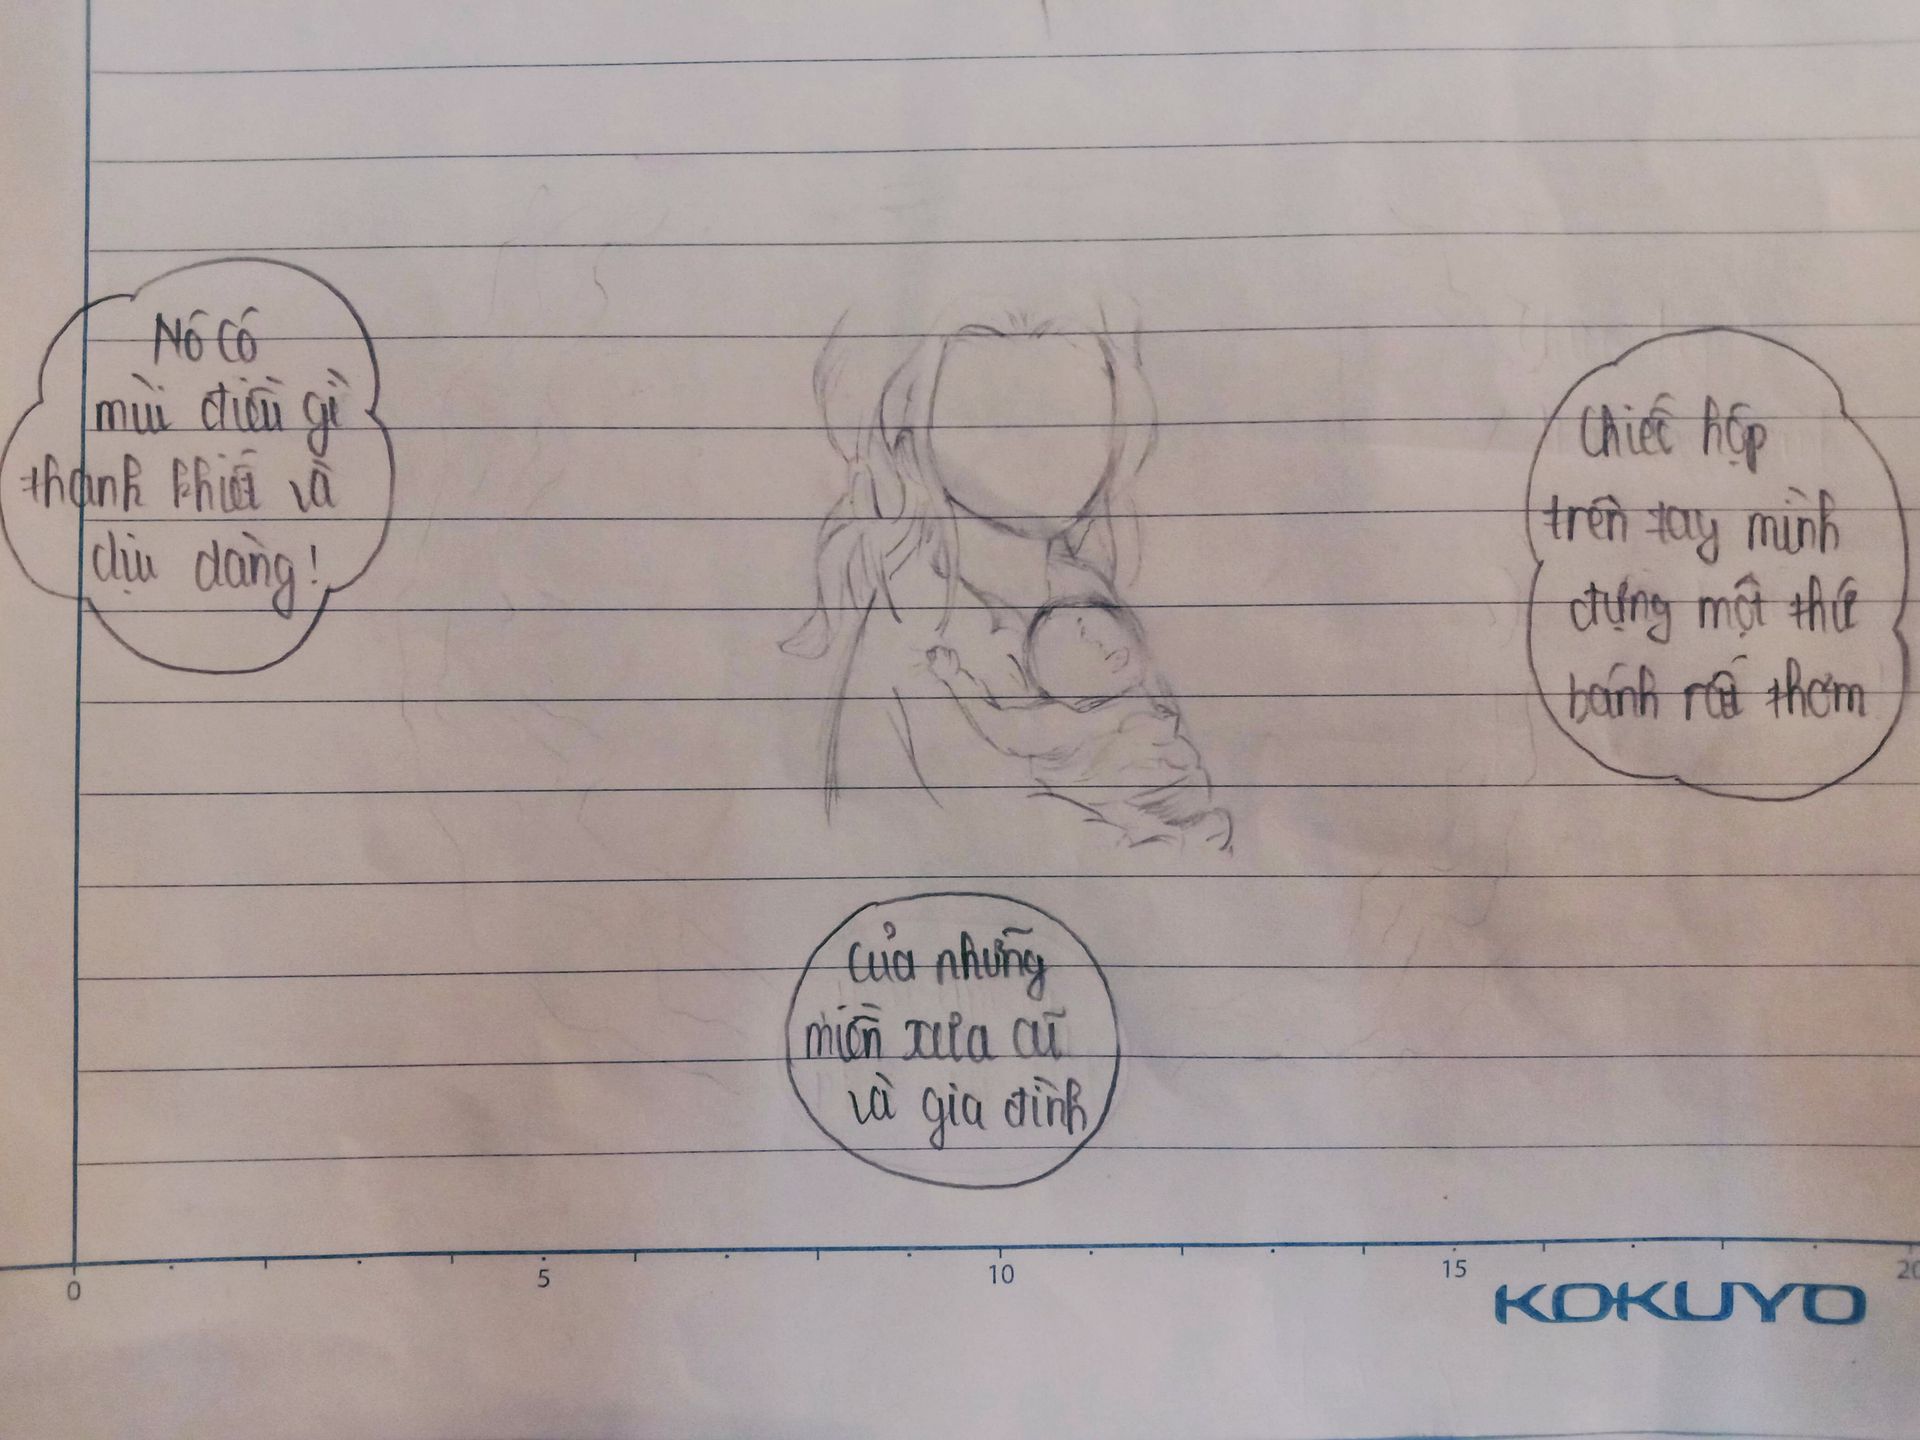 Nó có
mùi điều gì
thanh khiết và
dịu dàng!
Chiếc hộp
trên tay mình
đựng một thứ
bánh rất thơm
của những
miền xưa cũ
và gia đình
0 5 10 15 20
KOKUYO